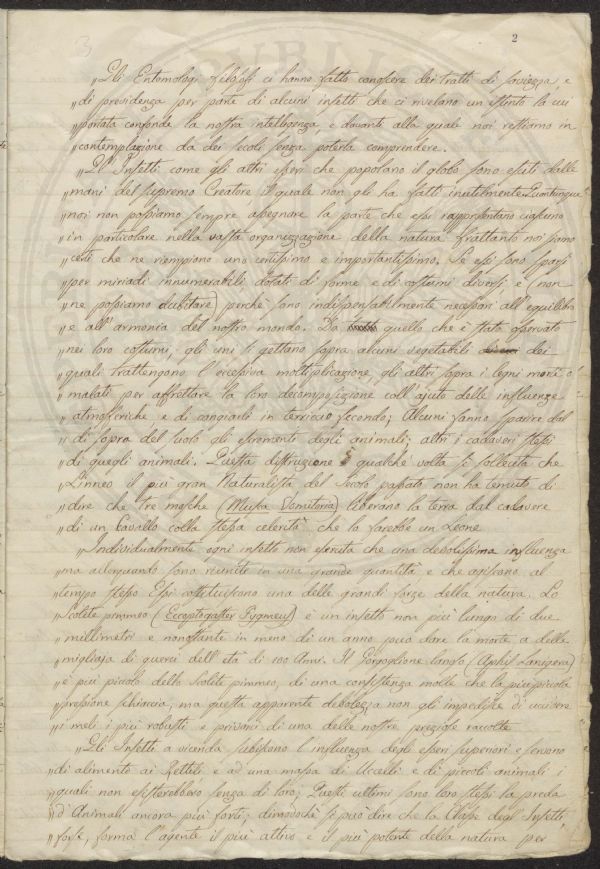 2
3
„Gli Entomologi filosofi ci hanno fatto conoscere dei tratti di saviezza e
„di previdenza per parte di alcuni insetti che ci rivelano un istinto la cui
„portata confonde la nostra intelligenza, e davanti alla quale noi restiamo in
„contemplazione da dei secoli senza poterla comprendere.
„Gl'Insetti come gli altri esseri che popolano il globo sono esciti dalle
„mani del supremo Creatore il quale non gli ha fatti inutilmente. Quantunque
„noi non possiamo sempre assegnare la parte che essi rappresentano ciascuno
„in particolare nella vasta organizzazione della natura frattanto noi siamo
„certi che ne riempiono uno certissimo e importantissimo. Se essi sono sparsi
„per miriadi innumerabili, dotati di forme e di costumi diversi e (non
„ne possiamo dubitare) perchè sono indispensabilmente necessari all'equilibrio
„e all'armonia del nostro mondo. Da quello che è stato osservato
„nei loro costumi, gli uni si gettano sopra alcuni vegetabili dei
„quali trattengono l'eccessiva moltiplicazione, gli altri sopra i legni morti o
„malati per affrettare la loro decomposizione coll'ajuto delle influenze
„atmosferiche e di cangiarli in terriccio fecondo; Alcuni fanno sparire dal
„di sopra del suolo gli escrementi degli animali; altri i cadaveri stessi
„di quegli animali. Questa distruzione è qualche volta sì sollecita che
„Linneo il più gran Naturalista del Secolo passato non ha temuto di
„dire che tre mosche (Musca Vomitoria) liberano la terra dal cadavere
„di un Cavallo colla stessa celerità che lo farebbe un Leone
„Individualmente ogni insetto non esercita che una debolissima influenza
„ma allorquando sono riunite in una grande quantità e che agiscono al
„tempo stesso Essi costituiscono una delle grandi forze della natura. Lo
„Scolite pimmeo (Eccoptogaster Pygmeus) è un insetto non più lungo di due
„millimetri e nonostante in meno di un anno può dare la morte a delle
„migliaja di querci dell'età di 100 Anni. Il Gorgoglione lanoso (Aphis Lanigera)
„è più piccolo dello Scolite pimmeo, di una consistenza molle che la più piccola
„pressione schiaccia, ma questa apparente debolezza non gli impedisce di uccidere
„i meli i più robusti e privarci di una delle nostre preziose raccolte
„Gli Insetti a vicenda subiscono l'influenza degli esseri superiori e servono
„di alimento ai Rettili e ad una massa di Uccelli e di piccoli animali i
„quali non esisterebbero senza di loro; Questi ultimi sono loro stessi la preda
„d'Animali ancora più forti; dimodochè si può dire che la Classe degl'Insetti,
„forse, forma l'agente il più attivo e il più potente della natura per